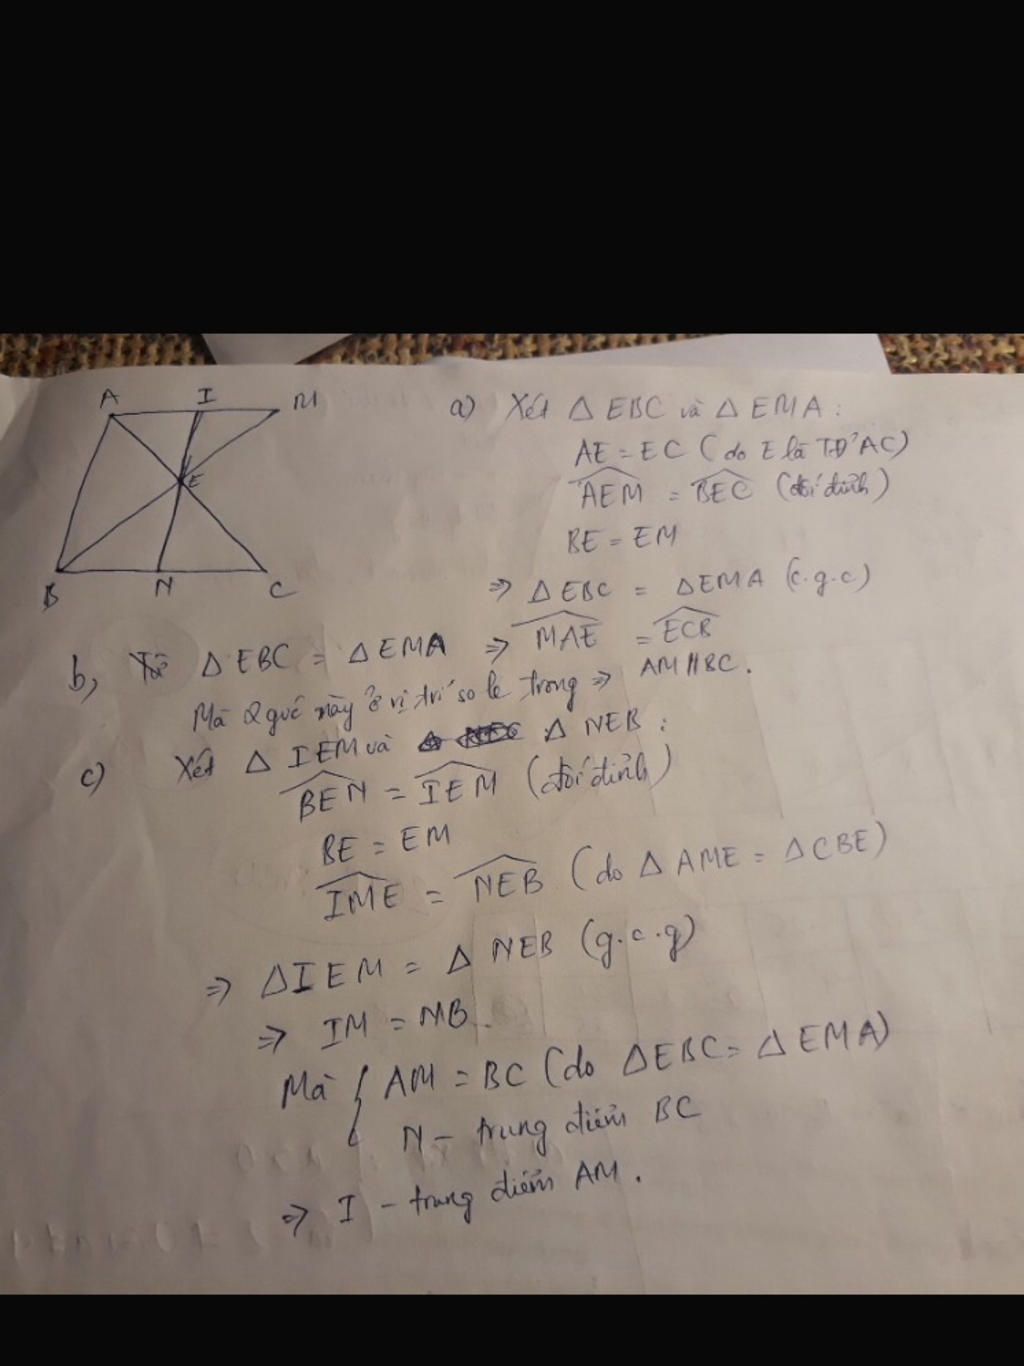 A I M
E
B N C
a) Xét △ EBC và △ EMA :
AE = EC ( do E là TĐ' AC)
$\widehat{AEM}$ = $\widehat{BEC}$ (đối đỉnh)
BE = EM
⇒ △ EBC = △EMA (c.g.c)
b, Từ △ EBC = △ EMA ⇒ $\widehat{MAE}$ = $\widehat{ECB}$
Mà 2 guc này ở vị trí so le trong ⇒ AM // BC.
c) Xét △ IEM và △ NEB :
$\widehat{BEN}$ = $\widehat{IEM}$ (đối đỉnh)
BE = EM
$\widehat{IME}$ = $\widehat{NEB}$ (do △ AME = △CBE)
⇒ △IEM = △ NEB (g.c.g)
⇒ IM = NB.
Mà { AM = BC (do △EBC = △EMA)
N - trung điểm BC
⇒ I - trung điểm AM.